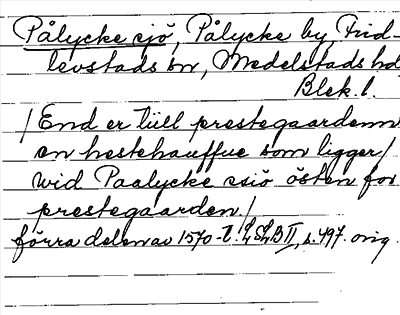 Pålycke sjö, Pålycke by, Frid-
levstads sn, Medelstads hd
Blek. l.
/End er tiill prestegaardenn
en hestehauffue som ligger/
wid Paalycke siö östen for
prestegaarden/
förra delen av 1570-t. LSLB II, s. 497. orig.